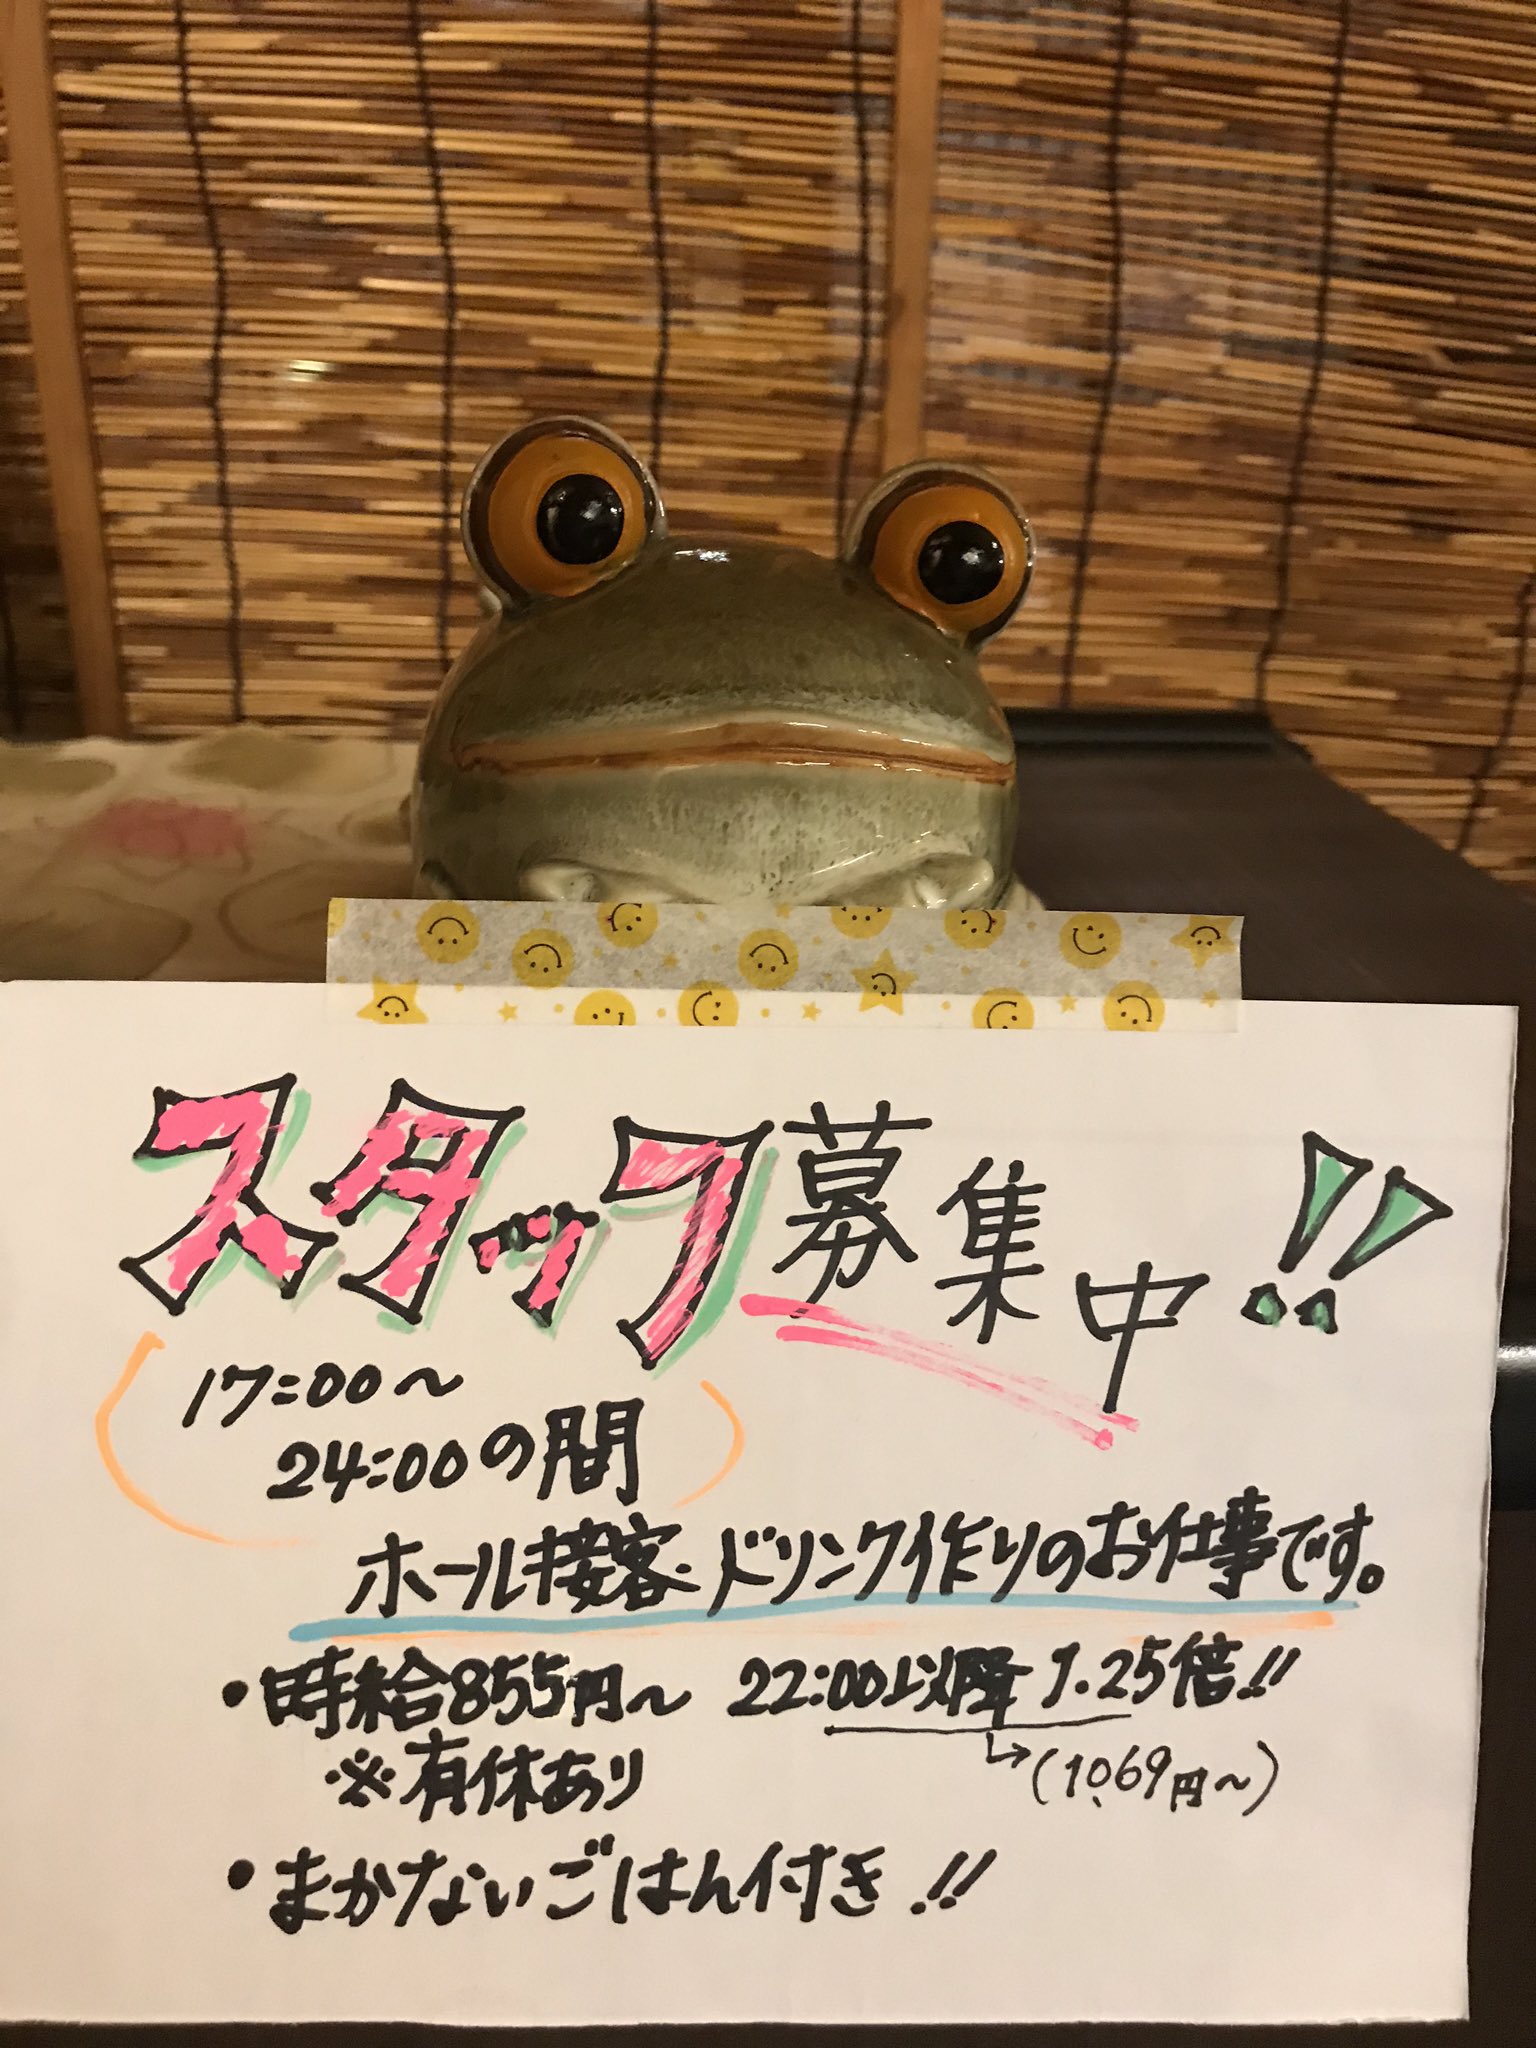 スタッフ募集中!!
17:00〜
24:00の間
ホール接客・ドリンク作りのお仕事です。
・時給855円〜 22:00以降1.25倍!!
※有休あり →(1,069円〜)
・まかないごはん付き!!